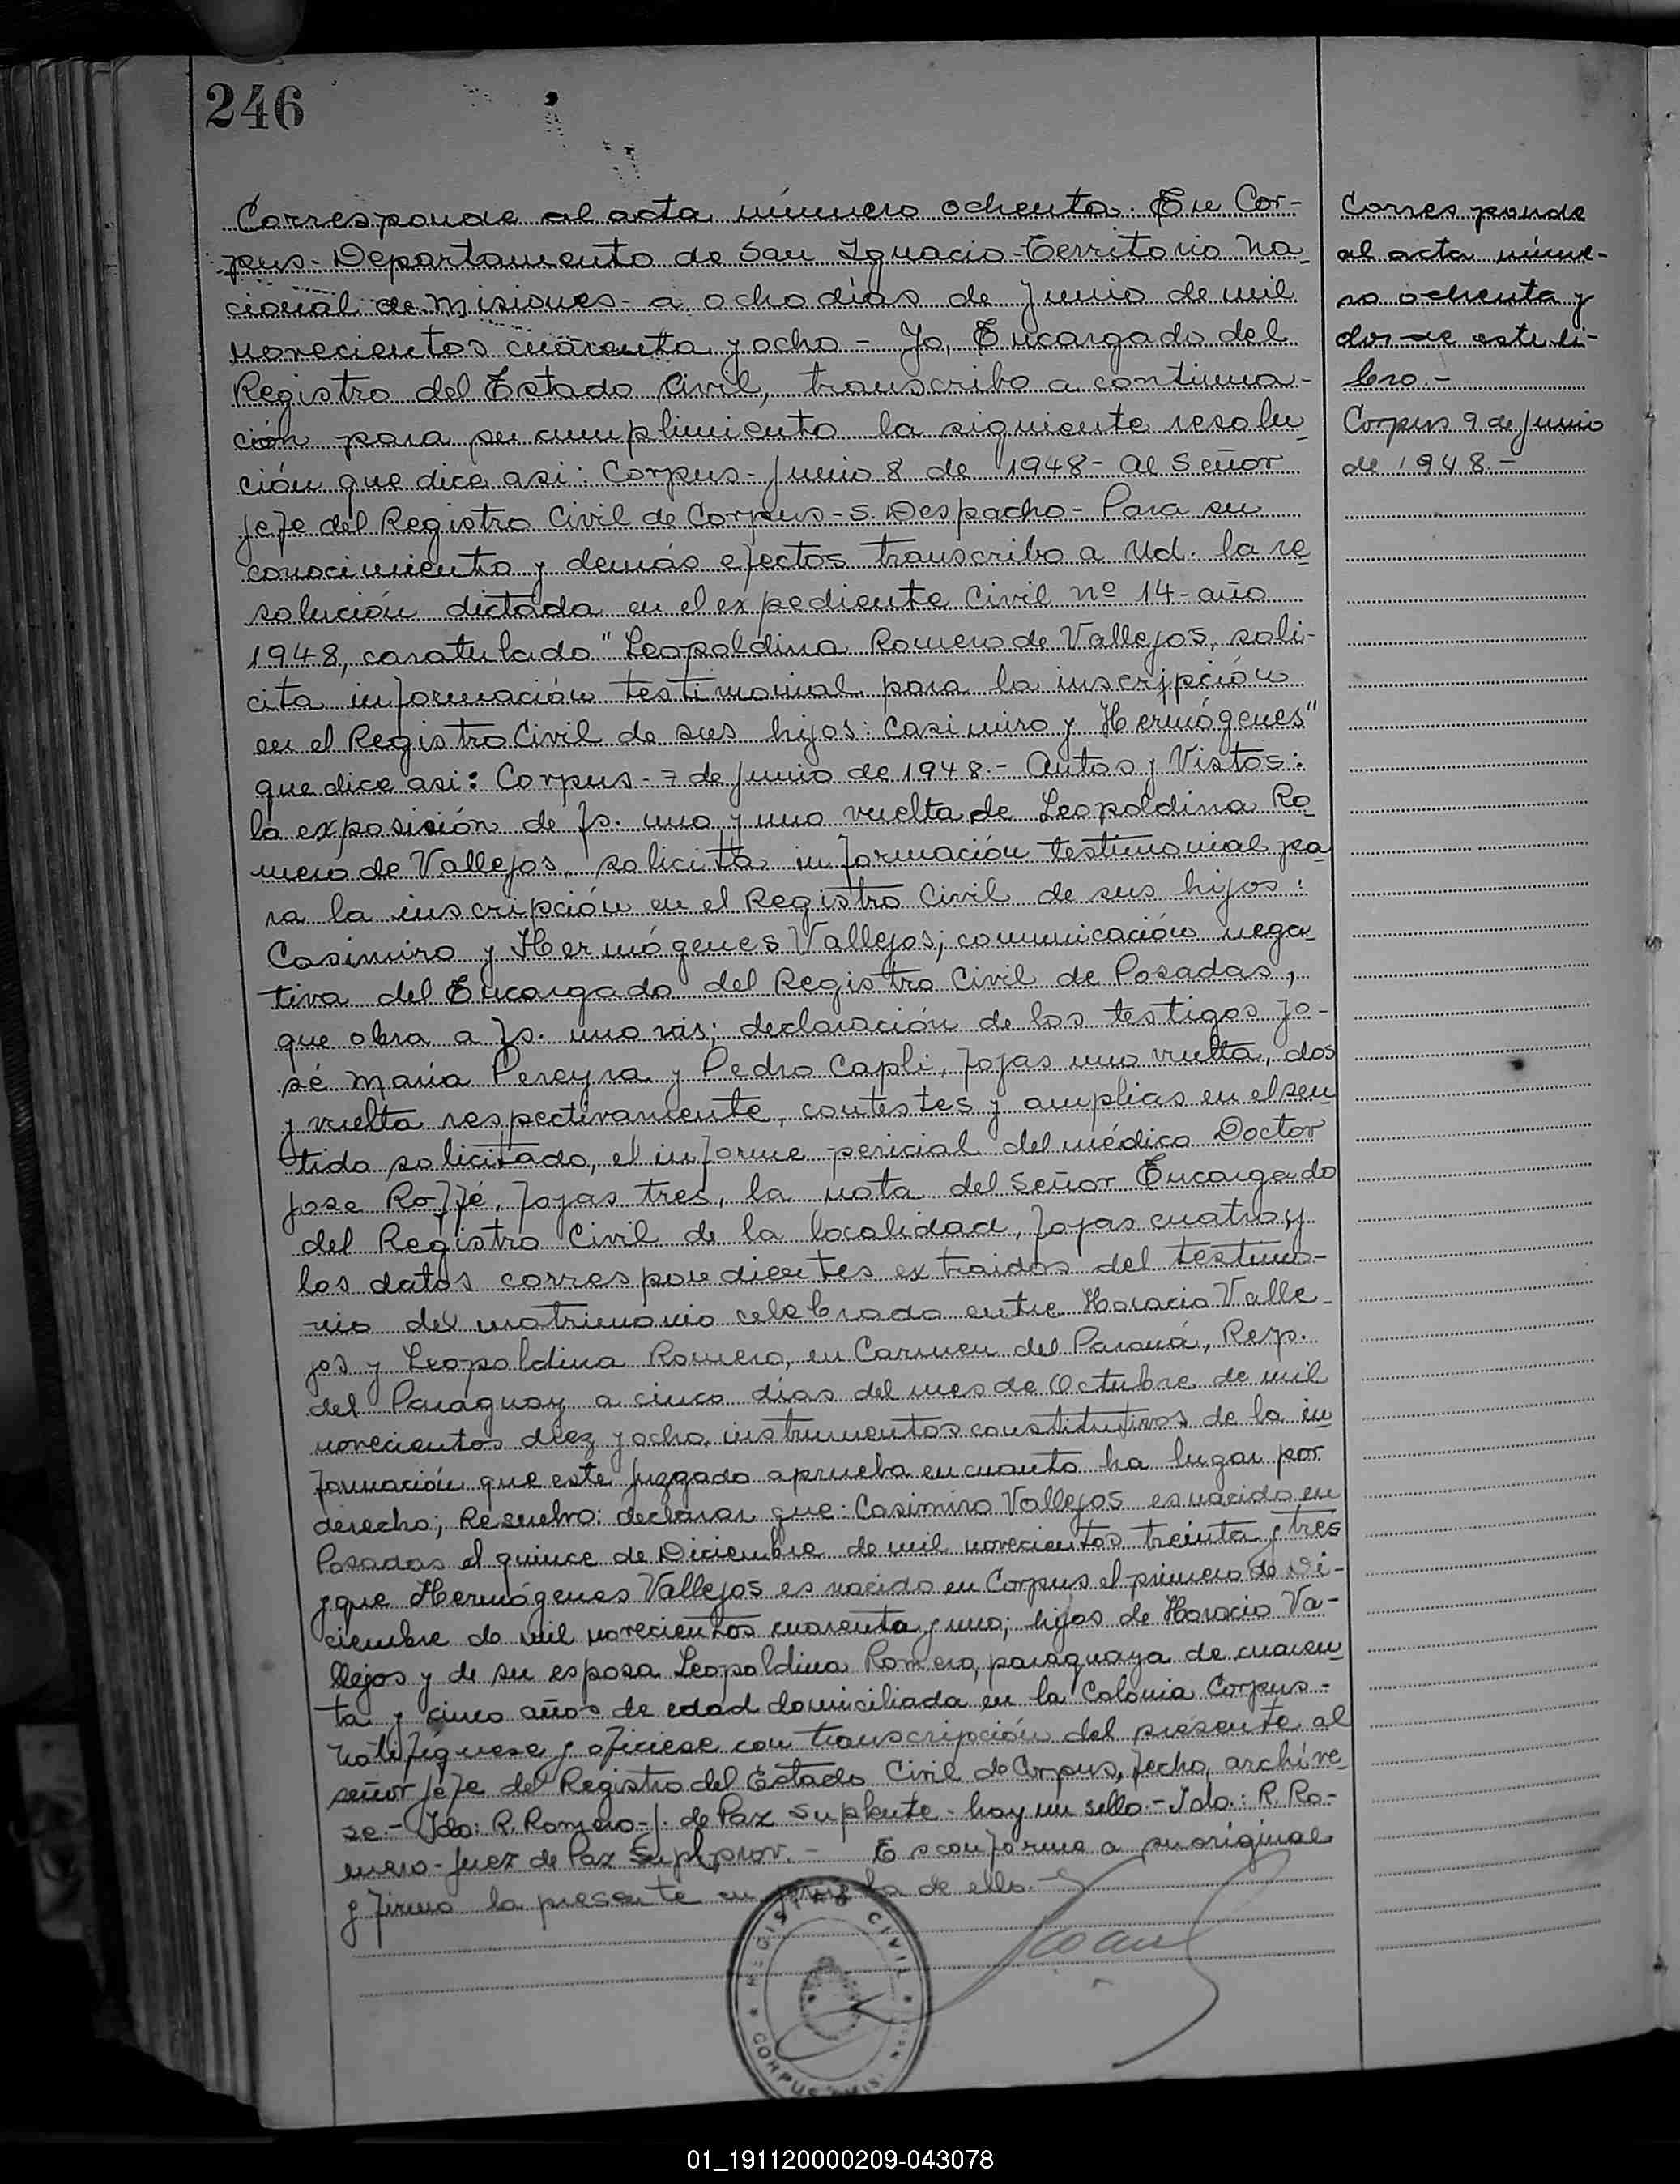 246
Corresponde al acta número ochenta. En Cor-
pus-Departamento de San Ignacio-Territorio Na-
cional de Misiones- a ocho días de Junio de mil
novecientos cuarenta y ocho - Yo, Encargado del
Registro del Estado Civil, transcribo a continua-
ción para su cumplimiento la siguiente resolu-
ción que dice asi: Corpus-Junio 8 de 1948- Al Señor
Jefe del Registro Civil de Corpus-S. Despacho- Para su
conocimiento y demás efectos transcribo a Ud. la re
solución dictada en el expediente Civil nº 14-año
1948, caratulado "Leopoldina Romero de Vallejos, soli-
cita información testimonial para la inscripción
en el Registro Civil de sus hijos: Casimiro y Hermógenes"
que dice asi: Corpus-7 de Junio de 1948.- Autos y Vistos:
la exposición de fs. uno y uno vuelta de Leopoldina Ro
mero de Vallejos, solicita información testimonial pa
ra la inscripción en el Registro Civil de sus hijos:
Casimiro y Hermógenes Vallejos; comunicación nega
tiva del Encargado del Registro Civil de Posadas,
que obra a fs. uno declaración de los testigos Jo-
sé María Pereyra y Pedro Capli, fojas uno vuelta, dos
y vuelta respectivamente, contestes y amplias en el sen
tido solicitado, el informe pericial del médico Doctor
Jose Roffé, fojas tres, la nota del Señor Encargado
del Registro Civil de la localidad, fojas cuatro y
los datos correspondientes extraidos del testimo-
nio del matrimonio celebrado entre Horacio Valle-
jos y Leopoldina Romero, en Carmen del Paraná, Rep.
del Paraguay a cinco días del mes de Octubre de mil
novecientos diez y ocho, instrumentos constitutivos de la in
formación que este Juzgado aprueba en cuanto ha lugar por
derecho; Resuelvo: declarar que: Casimiro Vallejos es nacido en
Posadas el quince de Diciembre de mil novecientos treinta y tres
y que Hermógenes Vallejos es nacido en Corpus el primero de Di-
ciembre de mil novecientos cuarenta y uno; hijos de Horacio Va-
llejos y de su esposa Leopoldina Romero, paraguaya de cuaren
ta y cinco años de edad domiciliada en la Colonia Corpus-
Notifíquese y ofíciese con transcripción del presente al
señor Jefe del Registro del Estado Civil de Corpus, fecho, archíve
se.- Fdo: R. Romero-J. de Paz Suplente- hay un sello.- Fdo.: R. Ro-
mero-Juez de Paz Supl. prov.- Es conforme a su original
y firmo la presente en prueba de ello.-
REGISTRO CIVIL
CORPUS MIS.
Corresponde
al acta núme-
ro ochenta y
dos de este li-
bro.-
Corpus 9 de Junio
de 1948.-
01_191120000209-043078